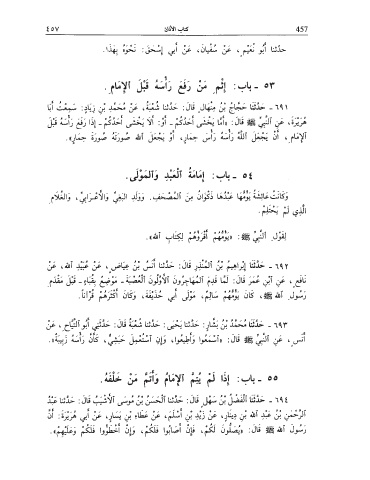 ٤٥٧ كتاب الأذان 457
حدثنا أبو نُعَيْم، عَنْ سُفْيانَ، عَنْ أبي إسْحَقَ: نَحْوَهُ بِهَذا.
٥٣ - باب: إثْمِ مَنْ رَفَعَ رَأسَهُ قَبْلَ الإمَامِ.
٦٩١ - حَدّثنا حَجّاجُ بْنُ مِنْهَالٍ قَالَ: حَدّثنا شُعْبَةُ، عَنْ مُحَمّدِ بْنِ زِيادٍ: سَمِعْتُ أبا
هُرَيْرَةَ، عَنِ النّبيّ ﷺ قَالَ: «أمَا يَخْشَى أحَدُكُمْ - أوْ: ألَا يَخْشَى أحَدُكُمْ - إذَا رَفَعَ رَأْسَهُ قَبْلَ
الإمَامِ، أنْ يَجْعَلَ اللَّهُ رَأْسَهُ رَأسَ حِمَارٍ، أوْ يَجْعَلَ الله صُورَتَهُ صُورَةَ حِمارٍ».
٥٤ - باب: إمَامَةُ الْعَبْدِ وَالمَوْلَى.
وَكَانَتْ عَائِشَةُ يَؤُمُّهَا عَبْدُهَا ذَكْوَانُ مِنَ المُصْحَفِ. وَوَلَدِ البَغِيِّ وَالأَعْرَابِيِّ، وَالغُلَامِ
الَّذِي لَمْ يَحْتَلِمْ.
لِقَوْلِ النَّبِيِّ ﷺ: «يَؤُمُّهُمْ أقْرَؤُهُمْ لِكِتَابِ الله».
٦٩٢ - حَدّثنا إبْراهِيمُ بْنُ المُنْذِرِ قَالَ: حَدّثنا أنَسُ بْنُ عِيَاضٍ، عَنْ عُبَيْدِ الله، عَنْ
نَافِعٍ، عَنِ ابْنِ عُمَرَ قَالَ: لَمَّا قَدِمَ المُهَاجِرُونَ الأوَّلُونَ العُصْبَةَ - مَوْضِعٌ بِقُبَاءٍ - قَبْلَ مَقْدَمِ
رَسُولِ الله ﷺ، كَانَ يَؤُمُّهُمْ سَالِمٌ، مَوْلَى أبي حُذَيْفَةَ، وَكَانَ أكْثَرَهُمْ قُرْآناً.
٦٩٣ - حَدّثنا مُحَمَّدُ بْنُ بَشَّارٍ: حَدّثنا يَحْيَى: حَدّثنا شُعْبَةُ قَالَ: حَدَّثَنِي أبُو التَّيَّاحِ، عَنْ
أنَسٍ، عَنِ النَّبِيِّ ﷺ قَالَ: «اسْمَعُوا وَأطِيعُوا، وَإنِ اسْتُعْمِلَ حَبَشِيٌّ، كَأنَّ رَأْسَهُ زَبِيبَةٌ».
٥٥ - باب: إذَا لَمْ يُتِمَّ الإمَامُ وَأتَمَّ مَنْ خَلْفَهُ.
٦٩٤ - حَدّثنا الفَضْلُ بْنُ سَهْلٍ قَالَ: حَدّثنا الحَسَنُ بْنُ مُوسَى الأَشْيَبُ قَالَ: حَدّثنا عَبْدُ
الرَّحْمَنِ بْنُ عَبْدِ الله بْنِ دِينَارٍ، عَنْ زَيْدِ بْنِ أسْلَمَ، عَنْ عَطَاءِ بْنِ يَسَارٍ، عَنْ أبي هُرَيْرَةَ: أنَّ
رَسُولَ الله ﷺ قَالَ: «يُصَلُّونَ لَكُمْ، فَإنْ أصَابُوا فَلَكُمْ، وَإنْ أخْطَؤُوا فَلَكُمْ وَعَلَيْهِمْ».